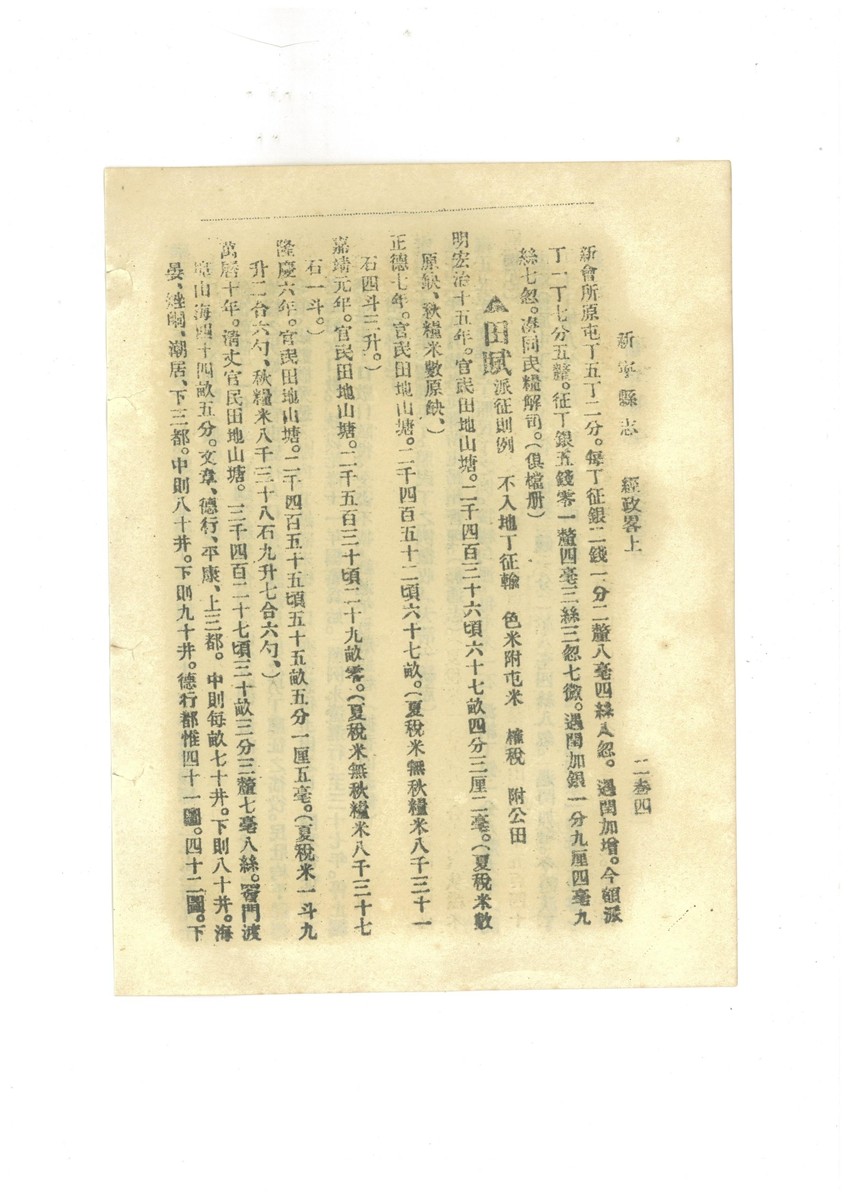 新寧縣志 經政畧上 二卷四
新會所原屯丁五丁二分。每丁征銀二錢一分二釐八毫四絲八忽。遇閏加增。今額派
丁一丁七分五釐。征丁銀五錢零一釐四毫三絲三忽七微。遇閏加銀一分九厘四毫九
絲七忽。湊同民糧解司。(俱檔册)
田賦 派征則例 不入地丁征輸 色米附屯米 榷稅 附公田
明宏治十五年。官民田地山塘。二千四百三十六頃六十七畝四分三厘二毫。(夏稅米數
原缺、秋糧米數原缺、)
正德七年。官民田地山塘。二千四百五十二頃六十七畝。(夏稅米無秋糧米八千三十一
石四斗二升。)
嘉靖元年。官民田地山塘。二千五百三十頃二十九畝零。(夏稅米無秋糧米八千三十七
石一斗。)
隆慶六年。官民田地山塘。二千四百五十五頃五十五畝五分一厘五毫。(夏稅米一斗九
升二合六勺、秋糧米八千三十八石九升七合六勺、)
萬曆十年。清丈官民田地山塘。三千四百二十七頃三十畝三分三釐七毫八絲。門渡
山海四十四畝五分。文章、德行、平康、上三都。中則每畝七十井。下則八十井。海
晏、矬峒、潮居、下三都。中則八十井。下則九十井。德行都惟四十一圖。四十二圖。下